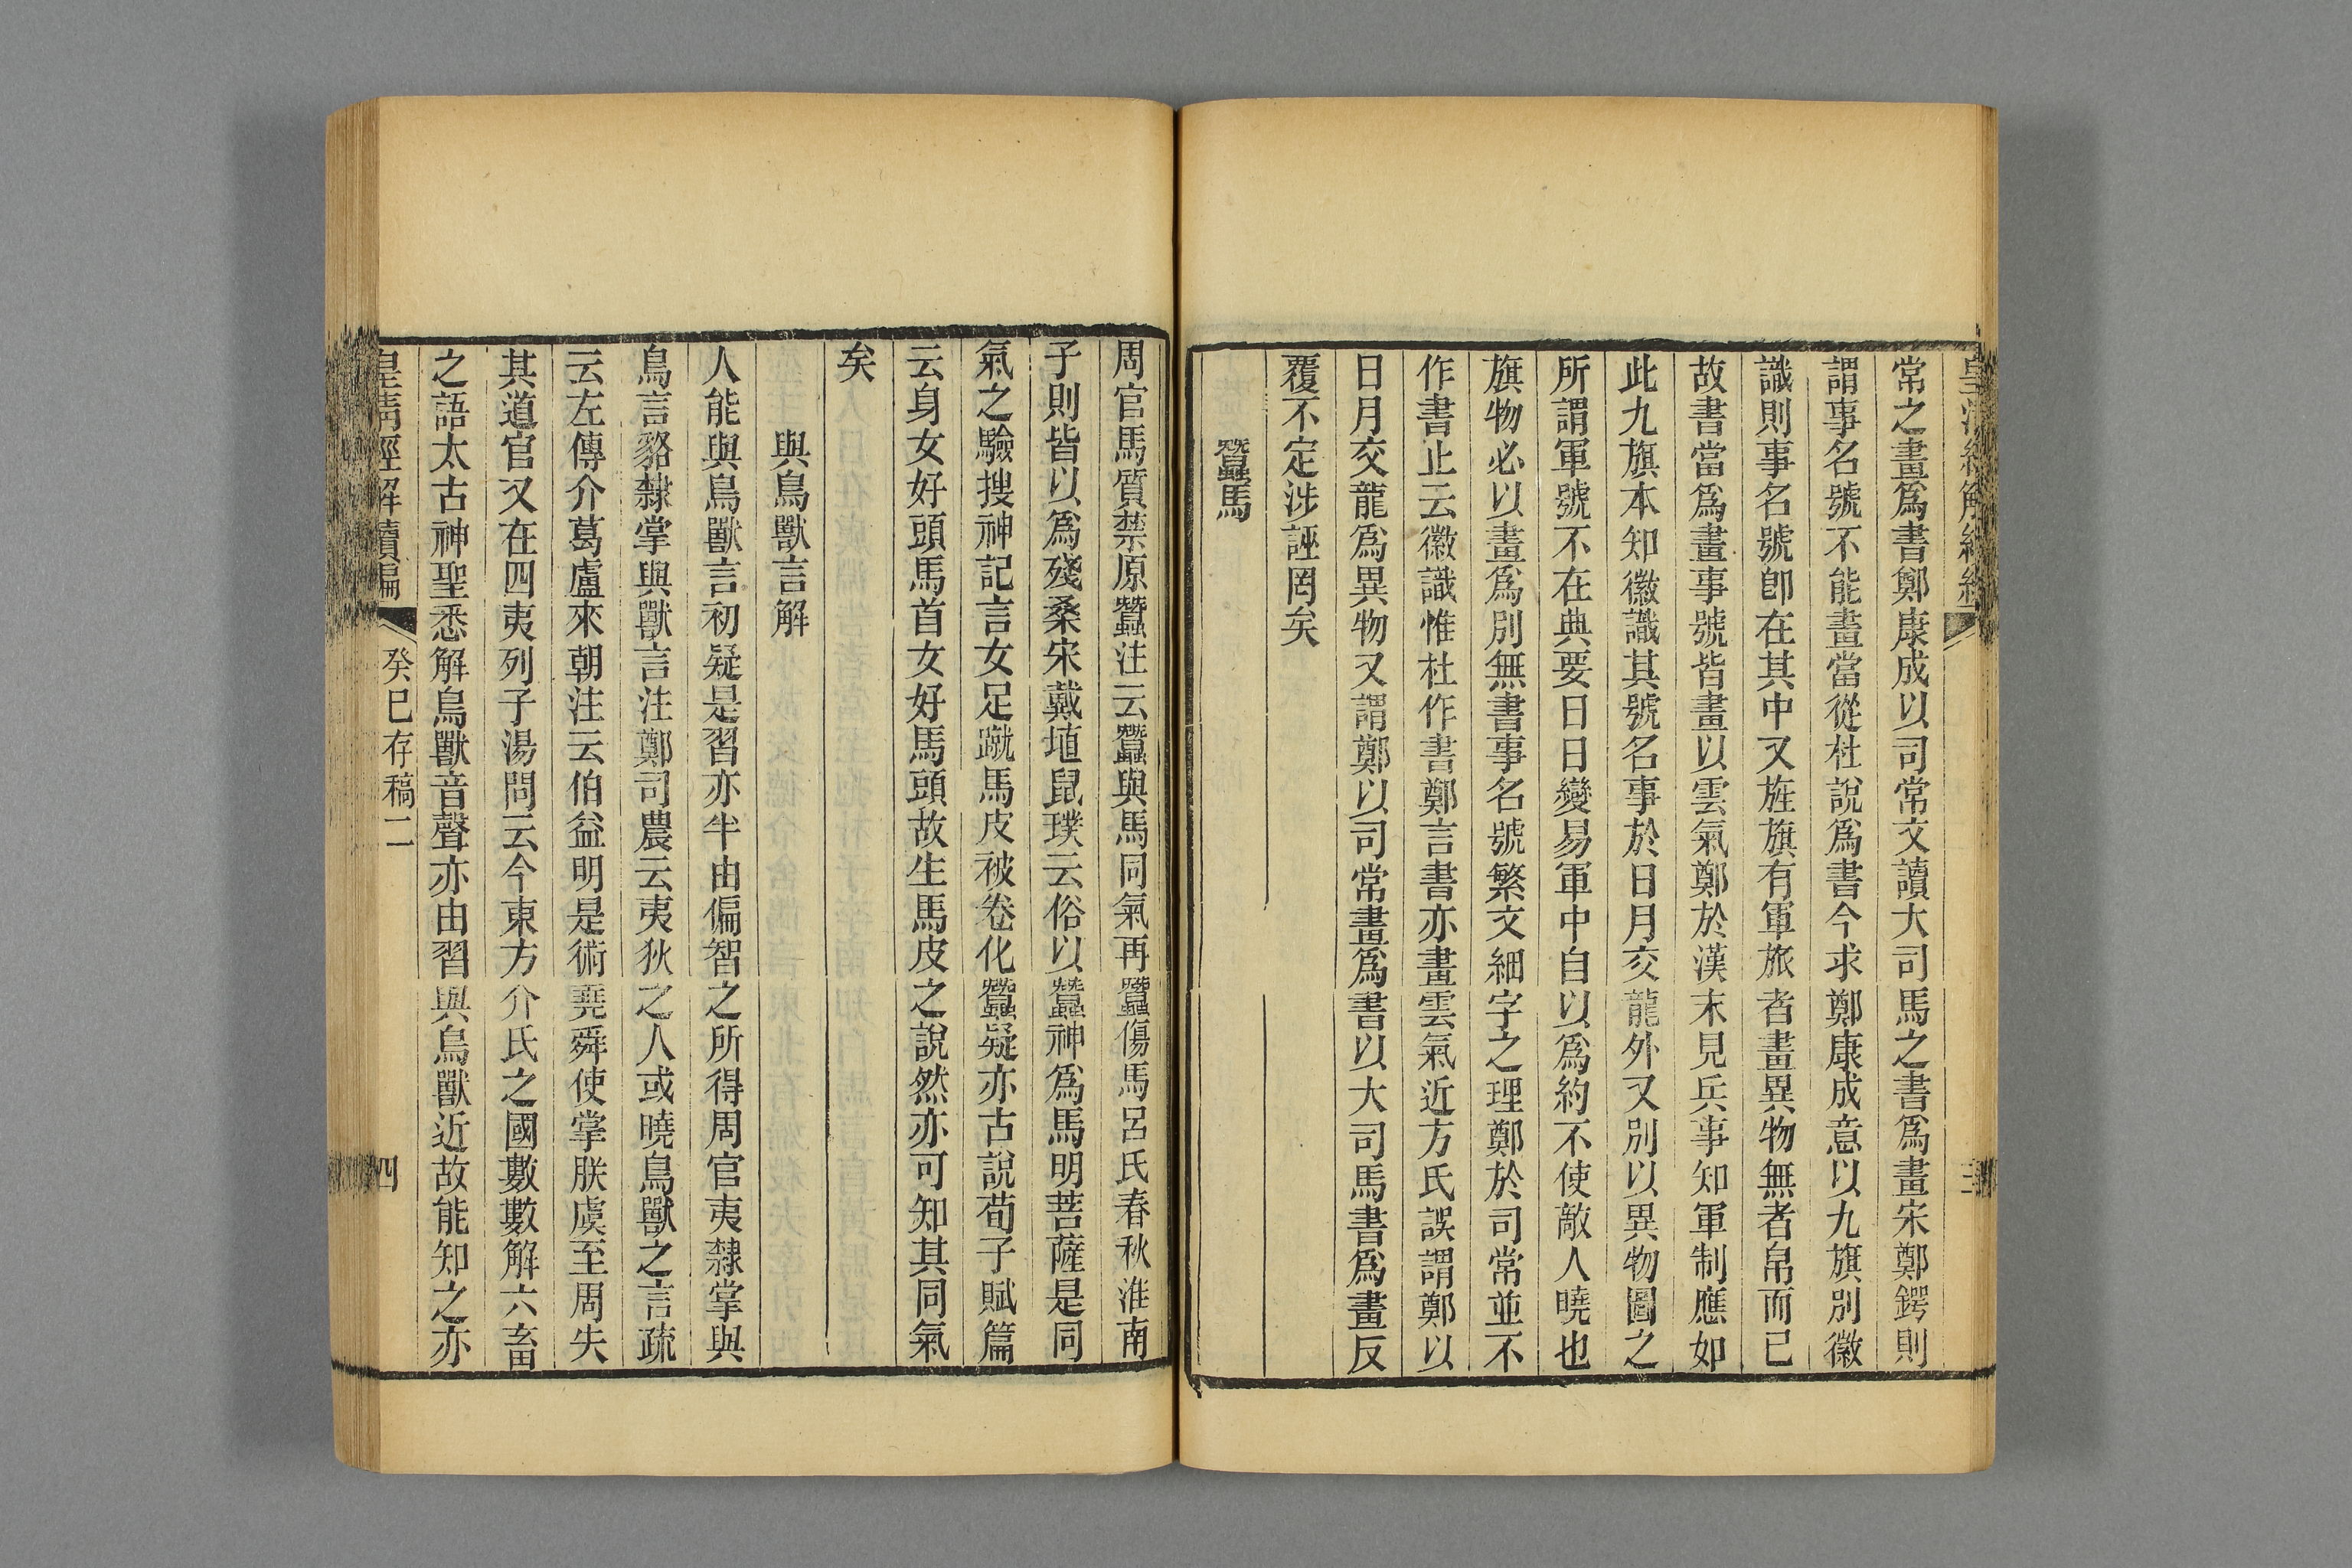 常之畫爲書鄭康成以司常文讀大司馬之書爲畫宋鄭鍔則
謂事名號不能畫當從杜說爲書今求鄭康成意以九旗別徽
識則事名號卽在其中又旌旗有軍旅者畫異物無者帛而已
故書當爲畫事號皆畫以雲氣鄭於漢末見兵事知軍制應如
此九旗本知徽識其號名事於日月交龍外又別以異物圖之
所謂軍號不在典要日日變易軍中自以爲約不使敵人曉也
旗物必以畫爲別無書事名號繁文細字之理鄭於司常並不
作書止云徽識惟杜作書鄭言書亦畫雲氣近方氏誤謂鄭以
日月交龍爲異物又謂鄭以司常畫爲書以大司馬書爲畫反
覆不定涉誣罔矣
蠶馬
周官馬質禁原蠶注云蠶與馬同氣再蠶傷馬呂氏春秋淮南
子則皆以爲殘桑宋戴埴鼠璞云俗以蠶神爲馬明菩薩是同
氣之驗搜神記言女足蹴馬皮被卷化蠶疑亦古說荀子賦篇
云身女好頭馬首女好馬頭故生馬皮之說然亦可知其同氣
矣
與鳥獸言解
人能與鳥獸言初疑是習亦半由偏智之所得周官夷隸掌與
鳥言貉隸掌與獸言注鄭司農云夷狄之人或曉鳥獸之言疏
云左傳介葛盧來朝注云伯益明是術堯舜使掌朕虞至周失
其道官又在四夷列子湯問云今東方介氏之國數數解六畜
之語太古神聖悉解鳥獸音聲亦由習與鳥獸近故能知之亦
皇清經解續編
癸巳存稿二
四